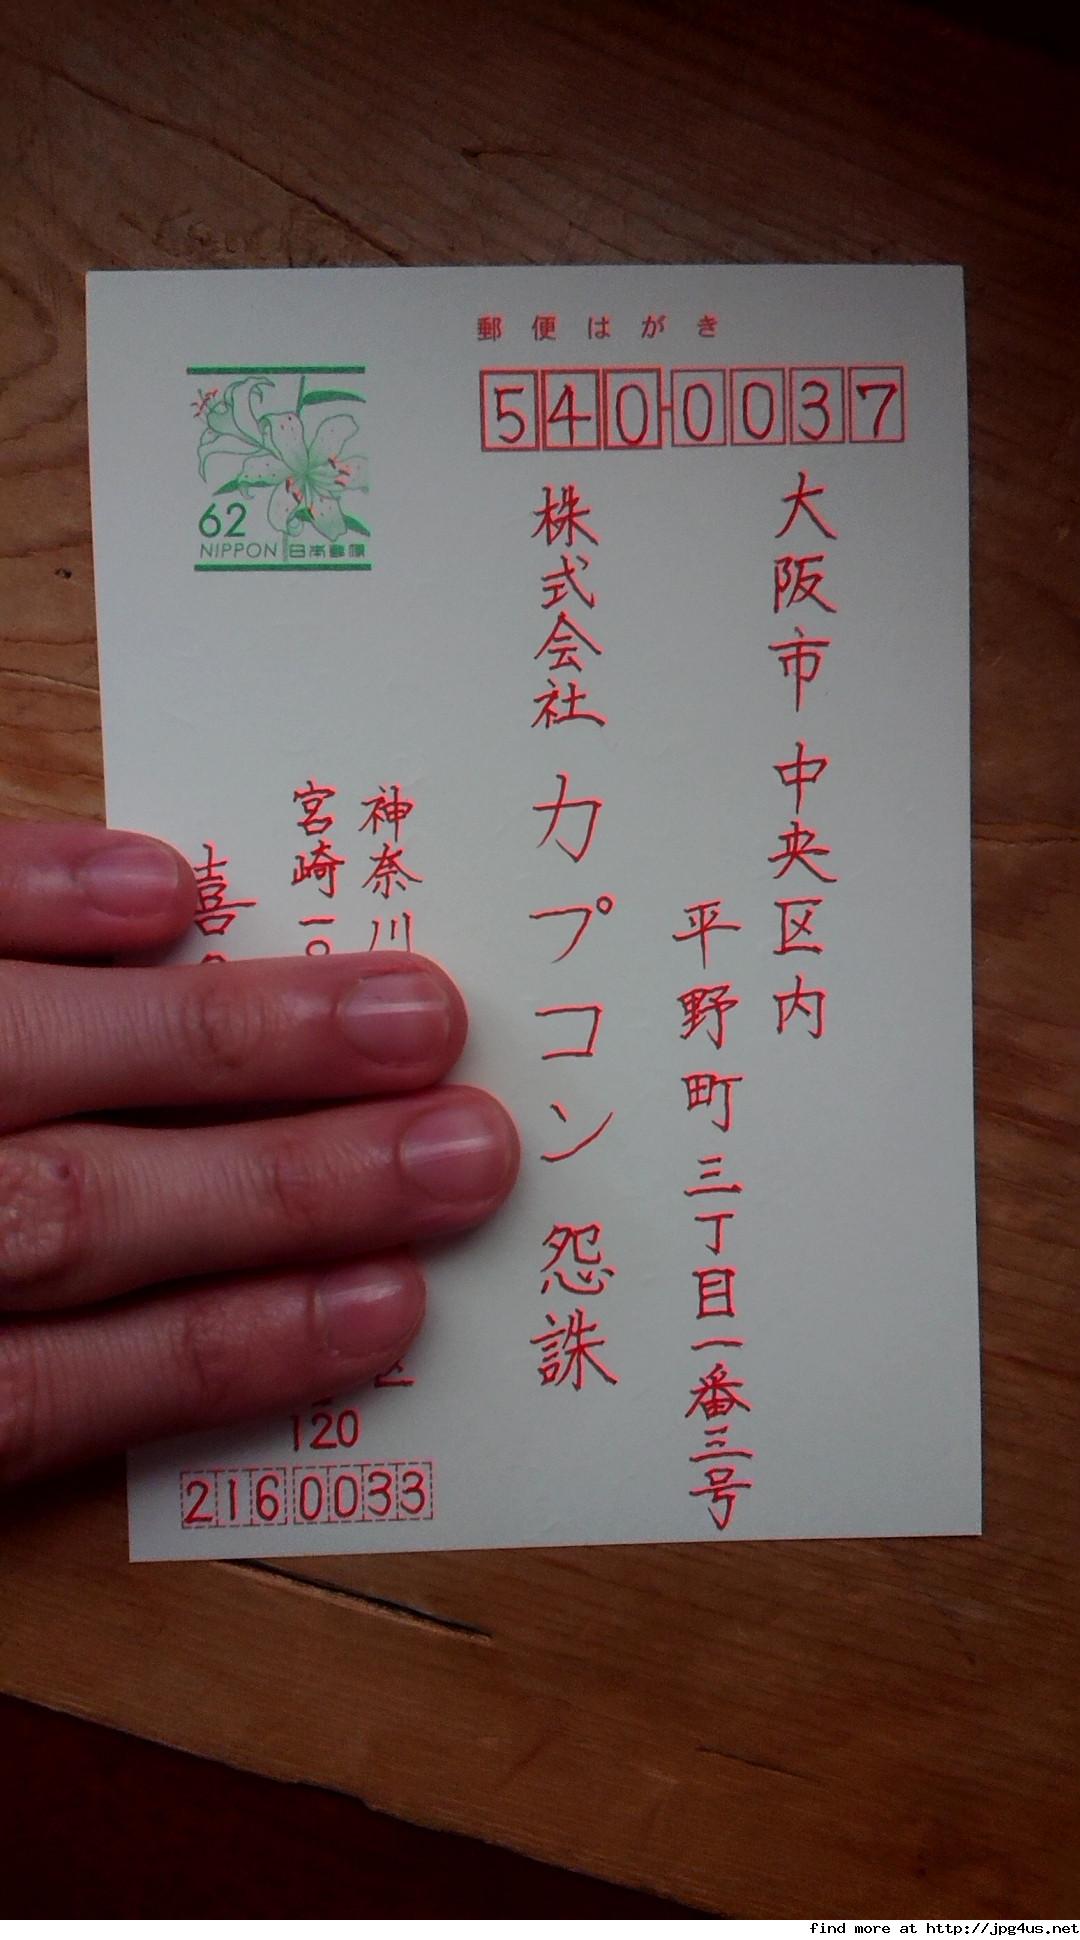 郵便はがき
540-0037
大阪市中央区内
平野町三丁目一番三号
株式会社カプコン怨誅
62
NIPPON 日本郵便
神奈川
宮崎一
喜
120
2160033
find more at http://jpg4us.net